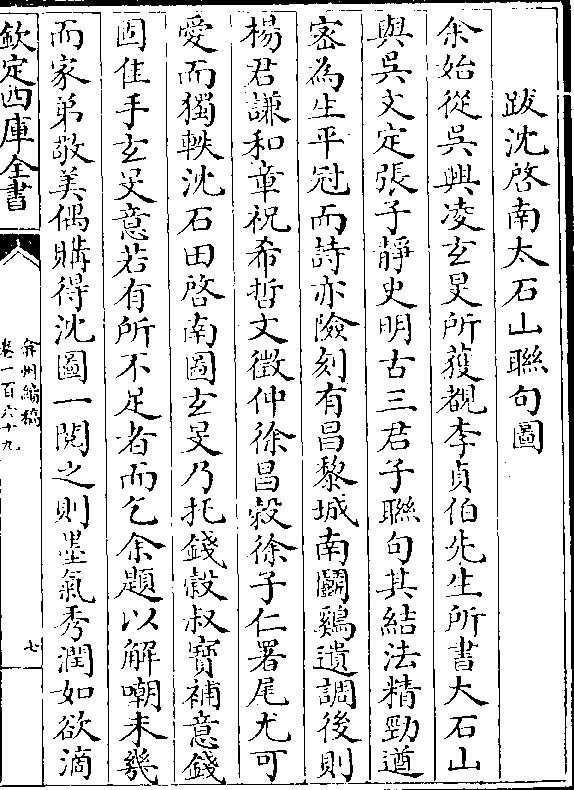 跋沈啓南太石山聯句圖
余始從吳興凌玄旻所獲覩李貞伯先生所書大石山
與吳文定張子靜史明古三君子聯句其結法精勁遒
宻為生平冠而詩亦險刻有昌黎城南鬬鷄遺調後則
楊君謙和章祝希哲文徵仲徐昌糓徐子仁署尾尤可
愛而獨軼沈石田啓南圖玄旻乃托錢糓叔寳補意錢
固佳手玄旻意若有所不足者而乞余題以解嘲未㡬
而家弟敬美偶購得沈圖一閱之則墨氣秀潤如欲滴
欽定四庫全書
弇州續稿
卷一百六十九
七